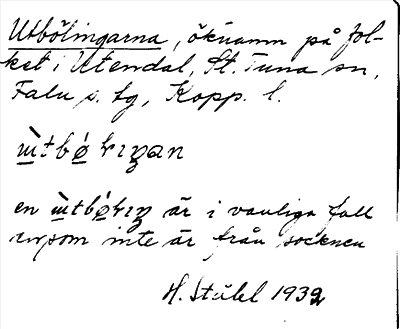 Utbölingarna, öknamn på fol-
ket i Utendal, St. Tuna sn,
Falu s. lg, Kopp. l.
ɯ̀tbǿkıŋan
en ɯ̀tbǿkıŋ är i vanliga fall
en, som inte är från socknen
H. Ståhl 1932